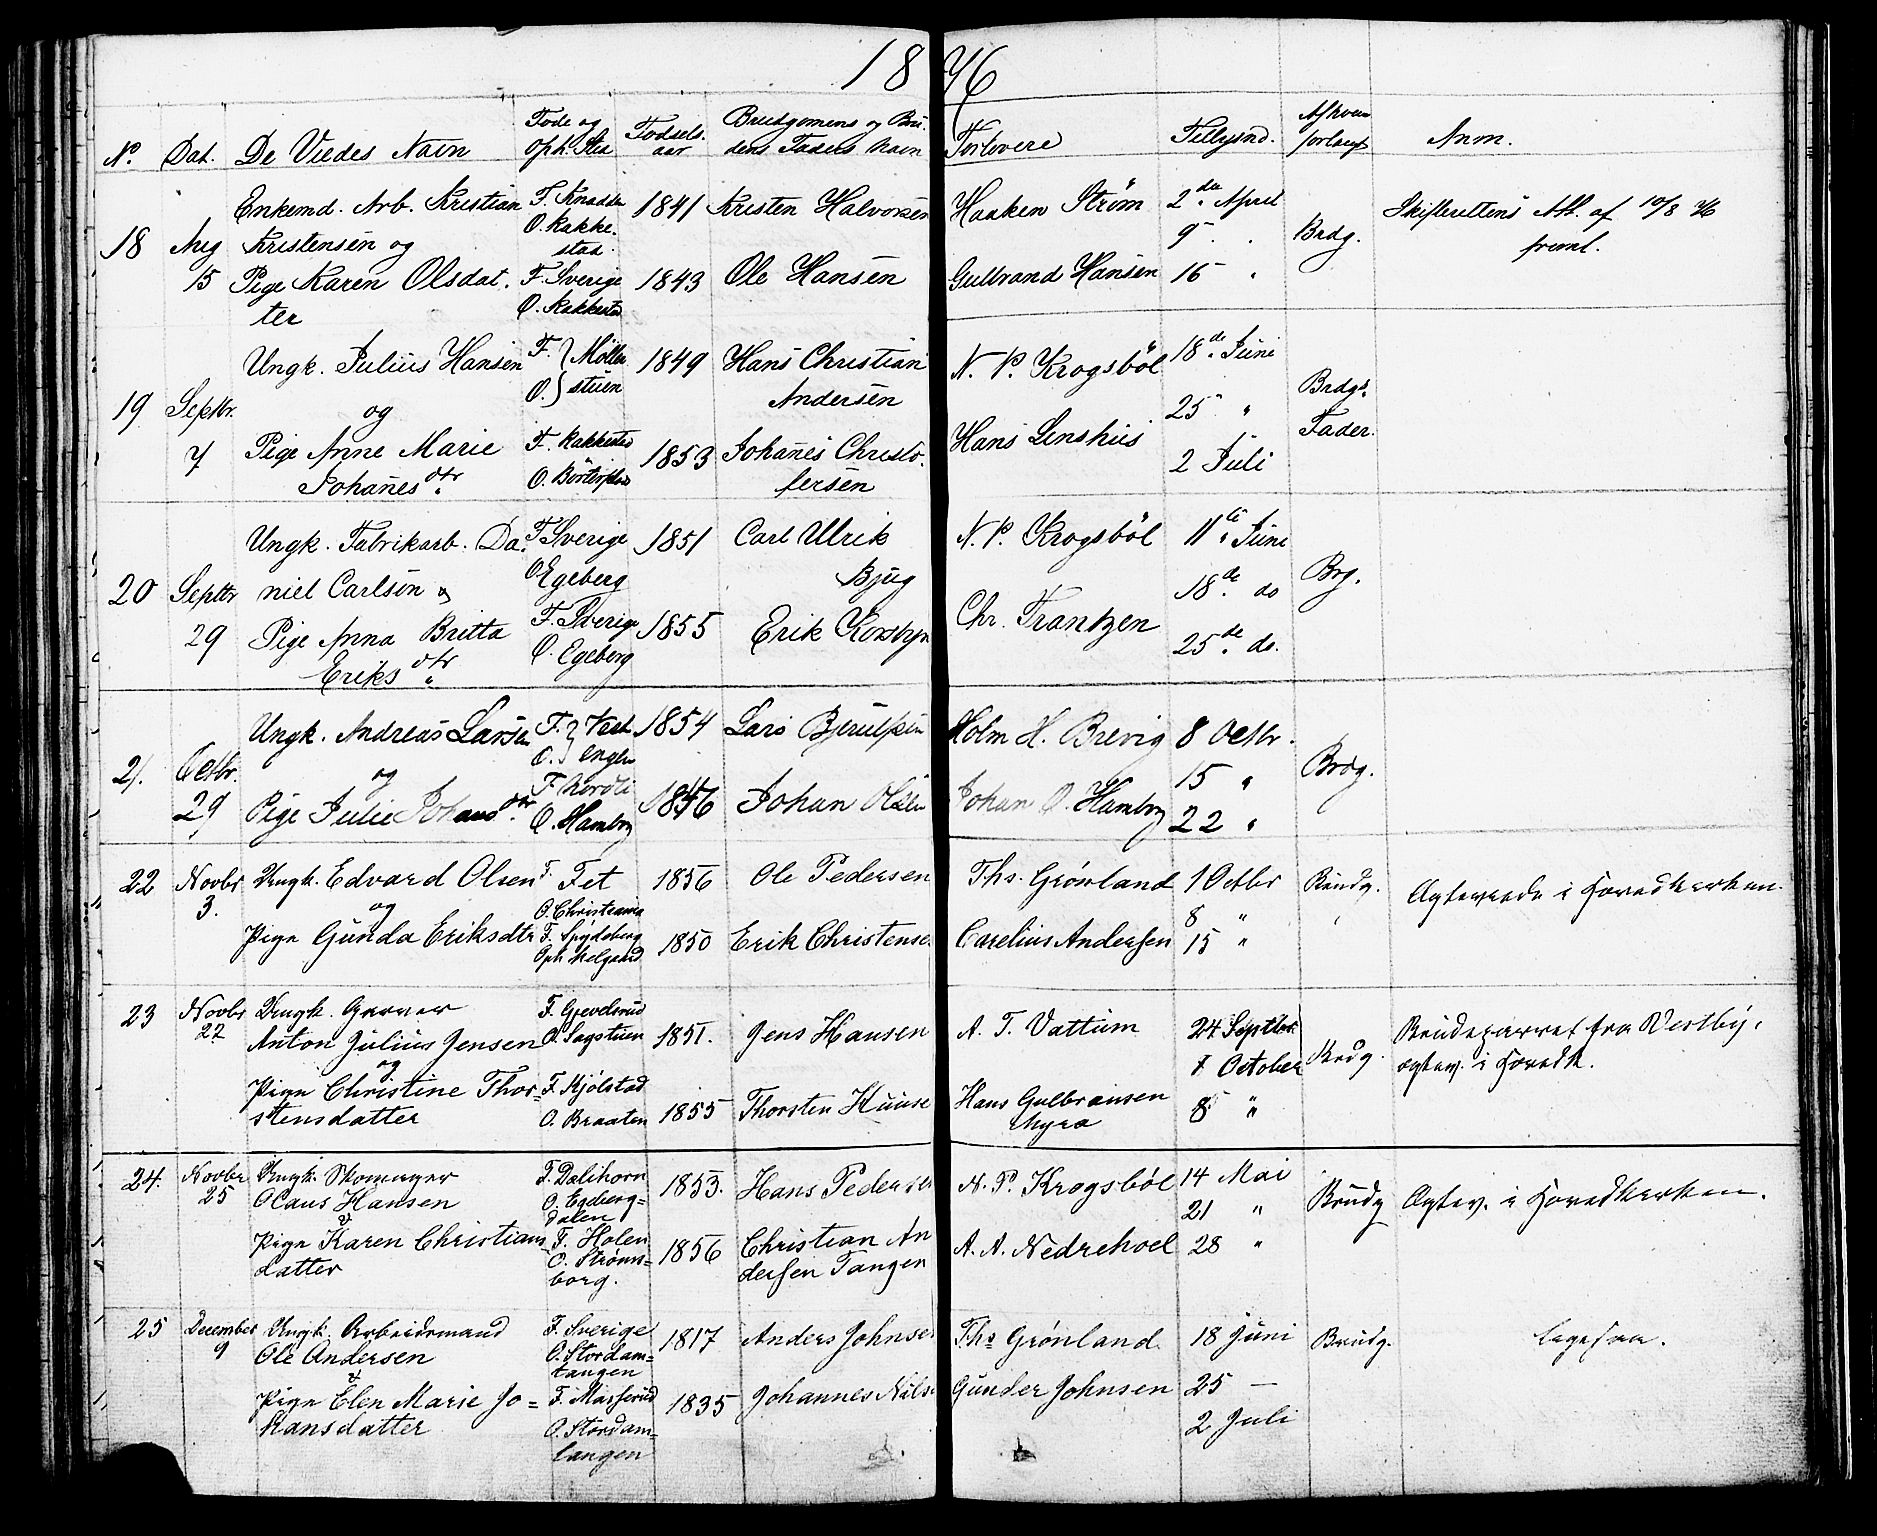 1876
No. Dat. De Viedes Navn Føde og Oph. Sted Fødsels aar Brudgomens og Brudens Faders Navn Forlovere Tillysnd. Anm.
18 Aug 15
Enkemd. Arb. Kristian
Kristensen og
Pige Karen Olsdat.
ter
F.
O. Kakke.
stad.
F. Sverige
O. Kakkestad
1841
1843
Kristen Halvorsen
Ole Hansen
Haaken Strøm
Gulbrand Hansen
2den April
9 "
16 "
Brdg.
Skifterettens Att. af 10/8 76
freml.
19 Septbr. 7
Ungk. Julius Hansen
og
Pige Anne Marie
Johanesdtr.
F. } Mølle
O. } stuen
F. Kakkestad
O.
1849
1853
Hans Christian
Andersen
Johanes Christo.
fersen
N. P. Krogsbøl
Hans Lenshus
18de Juni
25 "
2 Juli
Brdgs.
Fader.
20 Septbr 29
Ungk. Fabrikarb. Da.
niel Carlson &
Pige Anna Britta
Eriksdtr.
F. Sverige
O. Egeberg
F. Sverige
O. Egeberg
1851
1855
Carl Ulrik
Bjug
Erik
N. P. Krogsbøl
Chr. Frantzen
11te Juni
18de do
25de do.
Brg.
21. Octbr. 29
Ungk. Andreas Larsen
og
Pige Julie Johansdtr.
F. } Vest
O. } engen
F. Nordli
O. Hambro
1854
Lars
Johan Olsen
Holm H. Brevig
Johan O. Hambro
8 Octbr.
15 "
22 "
Brdg.
22 Novbr 3.
Ungk. Edvard Olsen
og
Pige Gunda Eriksdtr
F. Fet
O. Christiania
F. Spydeberg
Oph. Melgaard
1856
1850
Ole Pedersen
Erik Christense
Ths. Grønland
Carelius Andersen
1 Octbr
8 "
15 "
Brudg.
Ægteviede i Hovedkirken.
23 Novbr 22
Ungk. Garver
Anton Julius Jensen
og
Pige Christine Thor=
stensdatter
F. Gjevelsrud
O. Sagstuen
F. Kjølstad
O. Braaten
1851.
1855
Jens Hansen
Thorsten Huuse
A. T. Vattum
Hans Gulbransen
Myra
24 Septbr.
1 October
8 "
Brdg.
Brudeparret fra Vestby,
ægtev. i Hovedk.
24. Novbr 25
Ungk. Skomager
Olaus Hansen
&
Pige Karen Christians
datter
F. Dalihorn
O. Egeberg=
dalen
F. Holen
O. Strøms=
borg.
1853.
1856
Hans Pedersen
Christian An
dersen Tangen
N. P. Krogsbøl
A. A. Nedrehoel
14 Mai
21 "
28 "
Brudg
Ægtev. i Hovedkirken.
25 December 9
Ungk. Arbeidsmand
Ole Andersen
&
Pige Elen Marie Jo=
hansdatter
F. Sverige
O. Stordam=
tangen
F. Masserud
O. Stordam=
tangen
1817
1835
Anders Johnse
Johannes Nils
Ths Grønland.
Gunder Johnsen
18 Juni
25 —
2 Juli
Brudg.